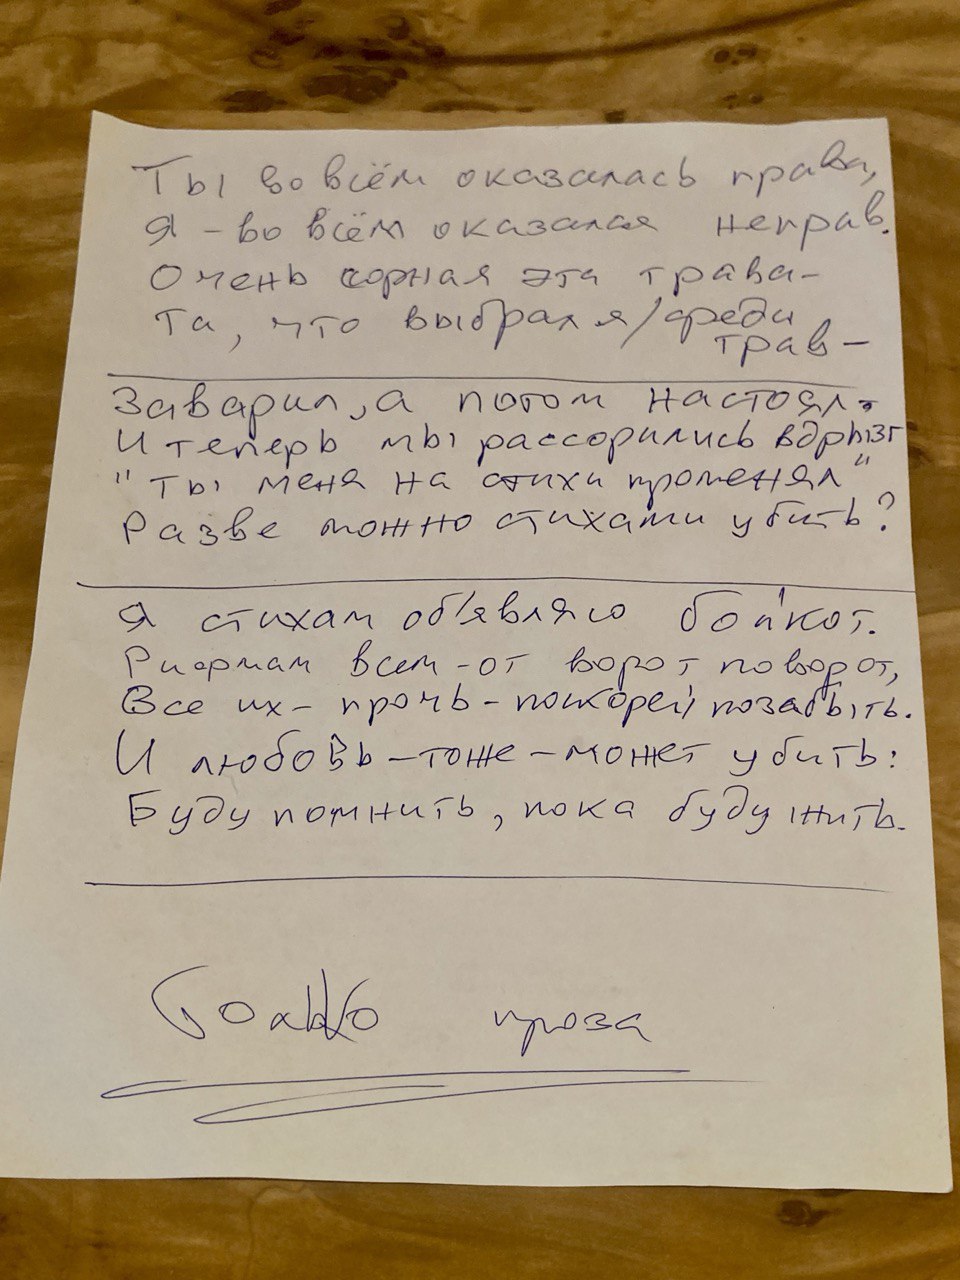 Ты во всём оказалась права,
Я - во всём оказался неправ.
Очень сорная эта трава-
Та, что выбрал я/среди
трав-
Заварил, а потом настоял-
И теперь мы рассорились вдрызг
"Ты меня на стихи променял"
Разве можно стихами убить?
Я стихам объявляю бойкот.
Рифмам всем-от ворот поворот,
Все их- прочь-поскорей позабыть.
И любовь-тоже-может убить:
Буду помнить, пока буду жить.
Только проза